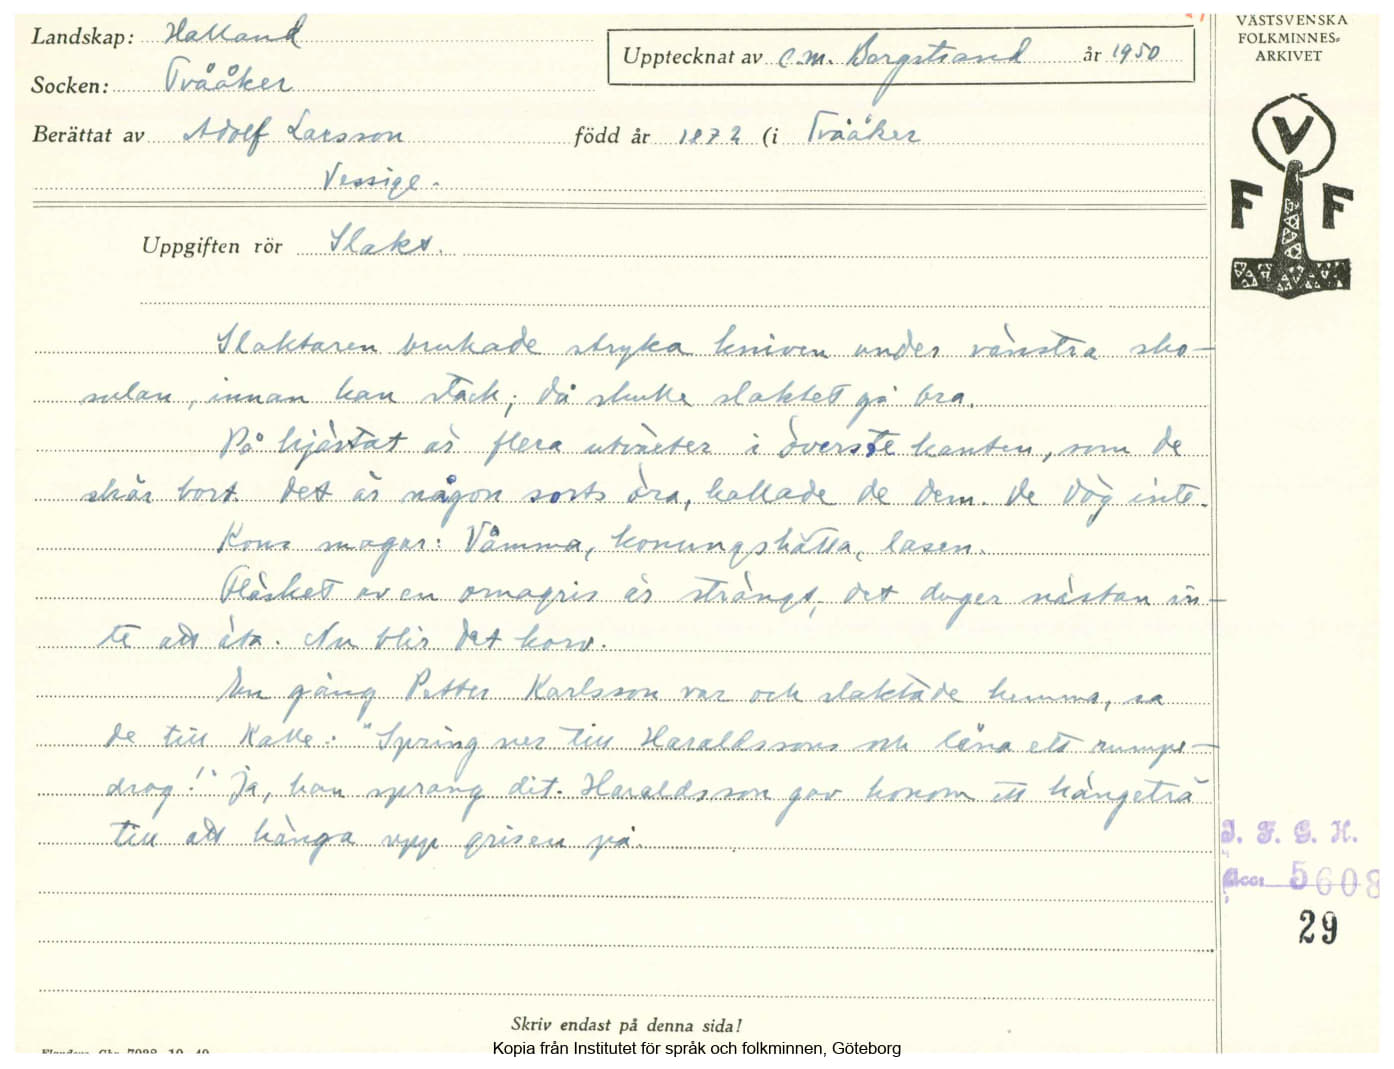 Landskap: Halland
Upptecknat av C.M. Bergstrand år 1950
VÄSTSVENSKA
FOLKMINNES-
ARKIVET
Socken: Tvååker
Berättat av Adolf Larsson född år 1872 (i Tvååker
Vessige.
V
F F
Uppgiften rör Slakt.
Slaktaren brukade stryka kniven under vänstra sko-
sulan, innan han stack; då skulle slaktet gå bra.
På hjärtat är flera utväxter i överste kanten, som de
skär bort. Det är någon sorts öra, kallade de dem. De dög inte.
Kons magar: Våmma, konungshätta, lasen.
Fläsket av en ornagris är strängt, det duger nästan in-
te att äta. Nu blir det korv.
En gång Petter Karlsson var och slaktade hemma, sa
de till Kalle: "Spring ner till Haraldssons och låna ett rumpe-
drag!" Ja, han sprang dit. Haraldsson gav honom ett hängeträ
till att hänga upp grisen på.
I. F. G. H.
Acc: 5608
29
Skriv endast på denna sida!
Kopia från Institutet för språk och folkminnen, Göteborg